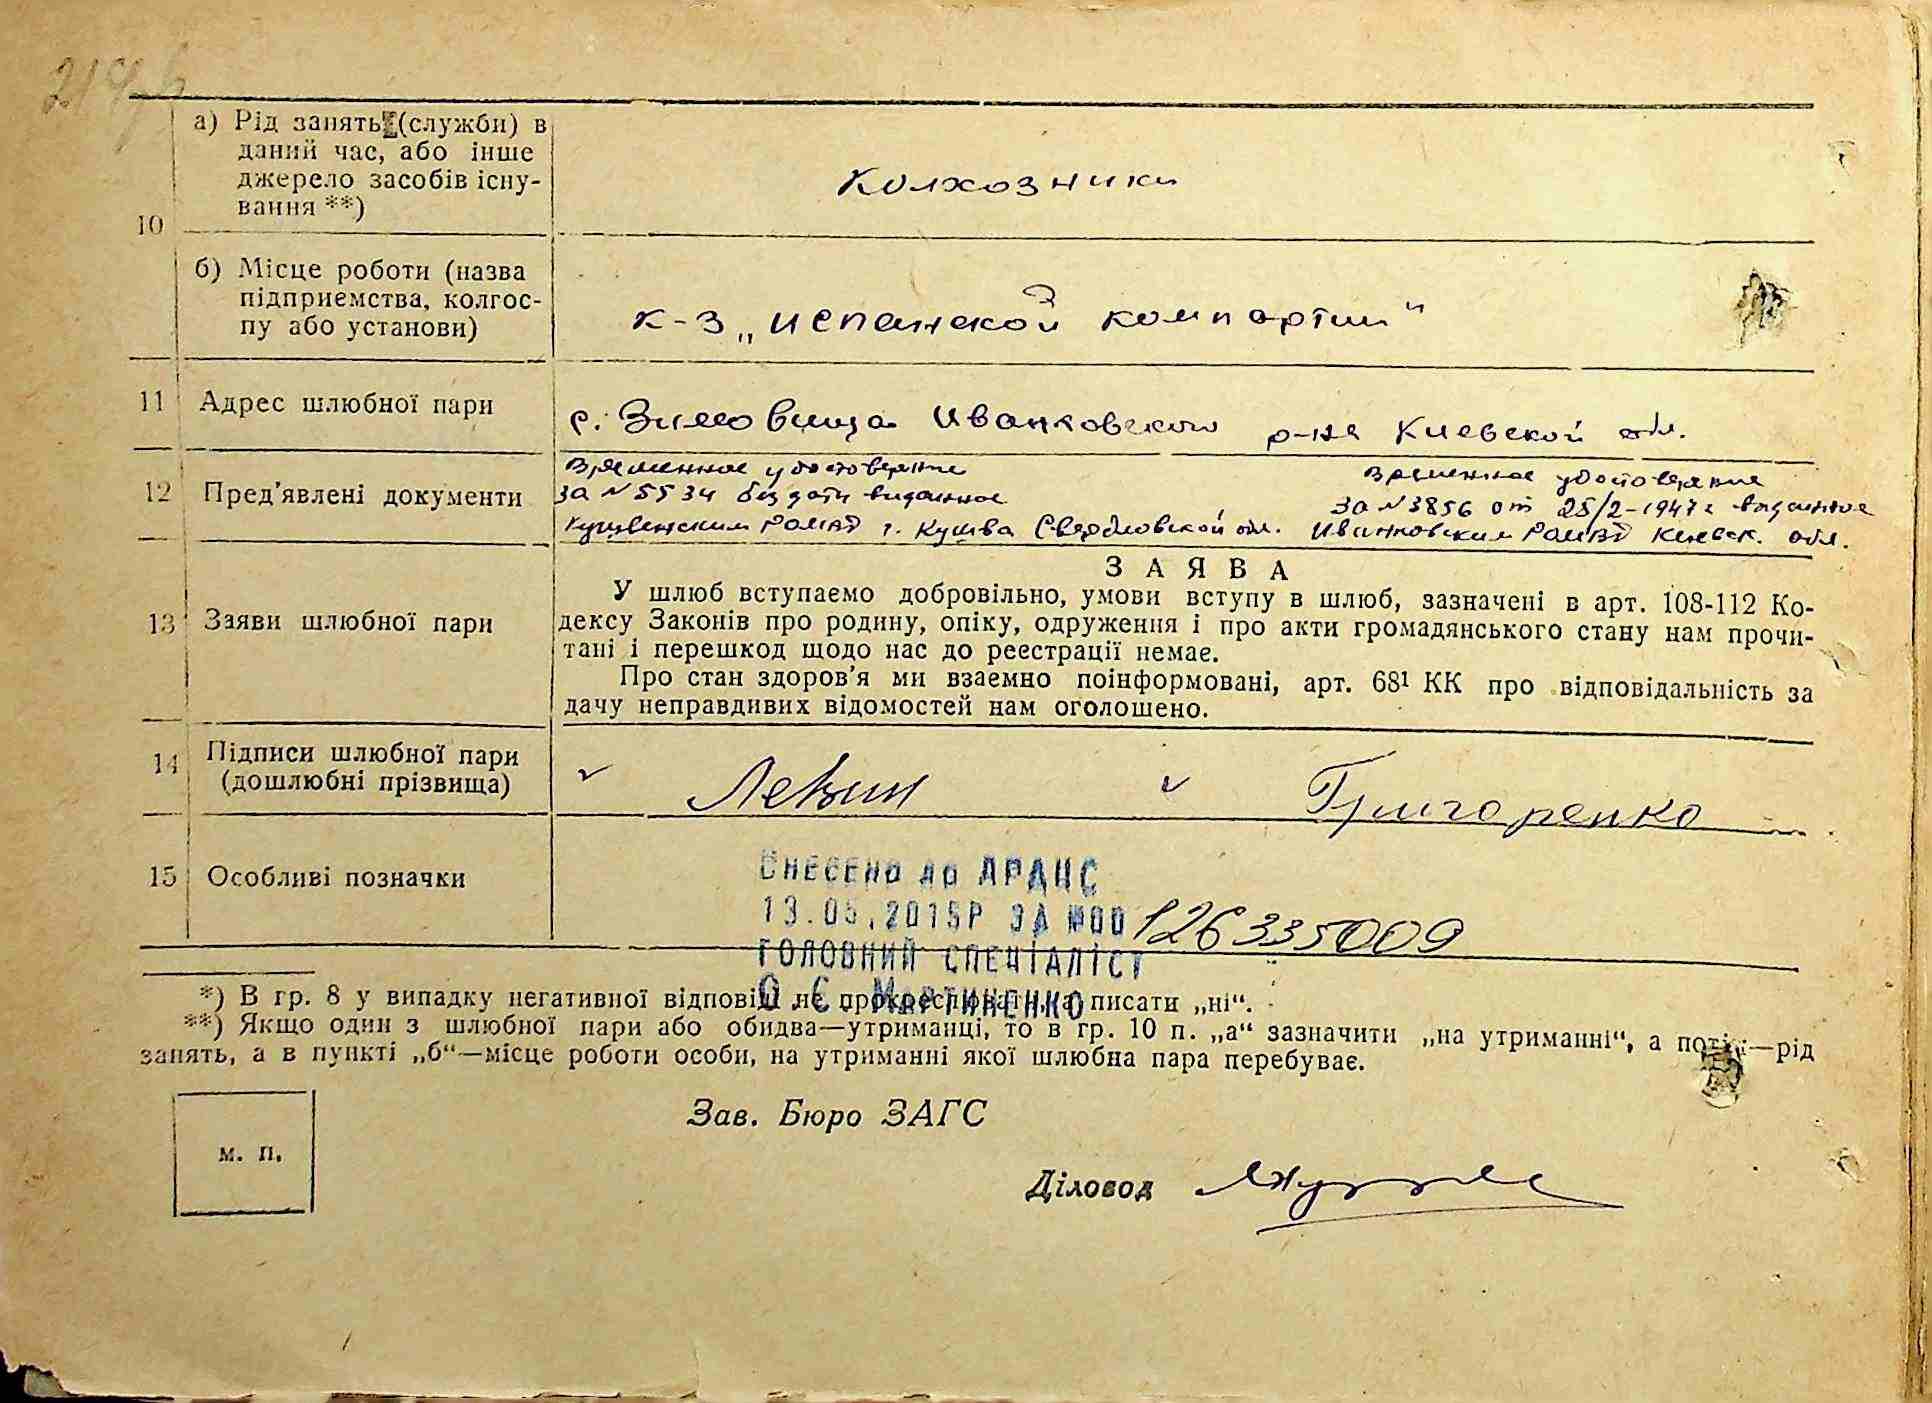 а) Рід занять (служби) в
даний час, або інше
джерело засобів існу-
вання **)
колхозники
10
б) Місце роботи (назва
підприємства, колгос-
пу або установи)
к-з „испанской компартии"
11 Адрес шлюбної пари
с. Зимовища Иванковского р-на Киевской обл.
12 Пред'явлені документи
Временное удостоверение
за №5534 без даты выданное
Кушвенским РОМВД г. Кушва Свердловской обл.
Временное удостоверение
за №3856 от 25/2-1947г выданное
Иванковским РОМВД Киевск. обл.
13 Заяви шлюбної пари
ЗАЯВА
У шлюб вступаємо добровільно, умови вступу в шлюб, зазначені в арт. 108-112 Ко-
дексу Законів про родину, опіку, одруження і про акти громадянського стану нам прочи-
тані і перешкод щодо нас до реестрації немає.
Про стан здоров'я ми взаємно поінформовані, арт. 68¹ КК про відповідальність за
дачу неправдивих відомостей нам оголошено.
14 Підписи шлюбної пари
(дошлюбні прізвища)
Левин Григоренко
15 Особливі позначки
ВНЕСЕНО ДО ДРАЦС
13.05.2015Р ЗА №00 126335009
ГОЛОВНИЙ СПЕЦІАЛІСТ
О.Є. МАРТИНЕНКО
*) В гр. 8 у випадку негативної відповіді не прокреслювати, а писати „ні".
**) Якщо один з шлюбної пари або обидва—утриманці, то в гр. 10 п. „а" зазначити „на утриманні", а потім—рід
занять, а в пункті „б"—місце роботи особи, на утриманні якої шлюбна пара перебуває.
м. п.
Зав. Бюро ЗАГС
Діловод